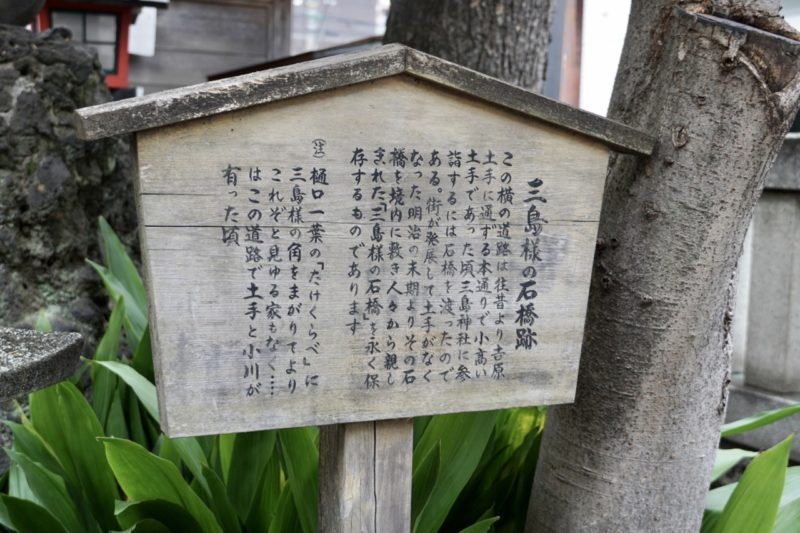 三島様の石橋跡
この横の道路は往昔より吉原
土手に通ずる本通りで小高い
土手であった頃三島神社に参
詣するには石橋を渡ったので
ある。街が発展して土手がなく
なった明治の末期よりその石
橋を境内に敷き人々から親し
まれた「三島様の石橋」を永く保
存するものであります
(注)樋口一葉の「たけくらべ」に
三島様の角をまがりてより
これぞと見ゆる家もなく……
はこの道路で土手と小川が
有った頃